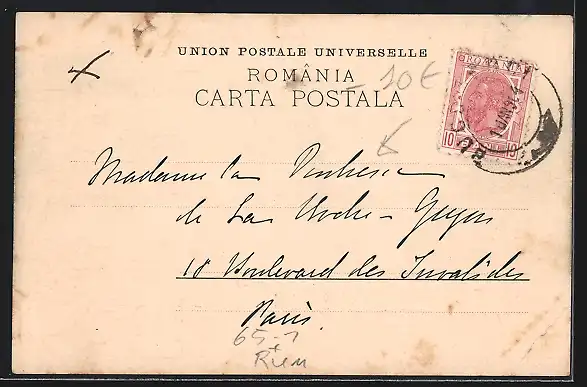 UNION POSTALE UNIVERSELLE
ROMÂNIA
CARTA POSTALA
10 €
ROMANIA
10 10
Madame la Duchesse
de La Roche-Guyon
18 Boulevard des Invalides
Paris.
65-1
+